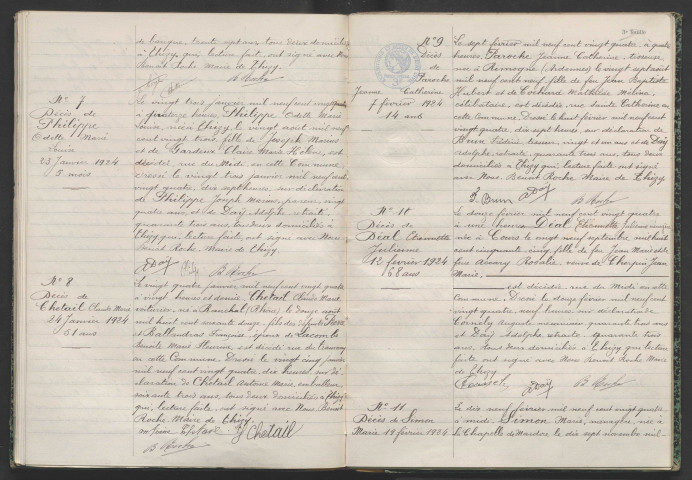 de banque, trente sept ans, tous deux domiciliés
à Thizy, qui, lecture faite ont signé avec Nous
Benoit Roche Maire de Thizy.
B Roche
N° 7
Décès de
Philippe
Odette Marie
Louise
23 Janvier 1924
5 mois
Le vingt trois janvier mil neuf cent vingt quatre
à heures, Philippe Odette Marie
Louise, née à Thizy, le vingt août mil neuf
cent vingt trois, fille de Joseph Marius
et de Claire Marie Hélène, est
décédée, rue du Midi en cette Commune.
Dressé le vingt trois janvier mil neuf cent
vingt quatre, dix sept heures, sur déclaration
de Philippe Joseph Marius, père, vingt
quatre ans, et de Daÿ Adolphe, retraité,
quarante trois ans, tous deux domiciliés à
Thizy, qui, lecture faite, ont signé avec Nous
Benoit Roche, Maire de Thizy.
ADaÿ
B Roche
N° 8
Décès de
Chetail Claude Marie
24 Janvier 1924
51 ans
Le vingt quatre janvier mil neuf cent vingt quatre
à vingt heures et demie, Chetail Claude Marie
né à Ranchal (Rhône) le douze août
mil huit cent soixante douze, fils des défunts Pierre
et Ballandras Françoise, époux de Lacombe
Benoite Marie, est décédé rue
en cette Commune. Dressé le vingt cinq janvier
mil neuf cent vingt quatre, dix heures, sur dé-
claration de Chetail Antoine Marie,
soixante trois ans, tous deux domiciliés à Thizy
qui, lecture faite, ont signé avec Nous, Benoit
Roche, Maire de Thizy.
Chetail
B Roche
N° 9
Décès
de
Paroche
Jeanne Catherine
7 février 1924
14 ans
Le sept février mil neuf cent vingt quatre, à quatre
heures, Paroche Jeanne Catherine,
née à (Ardennes) le vingt sept août
mil neuf cent neuf, fille de feu Jean Baptiste
Hubert et de Cochard Mathilde Mélina,
célibataire, est décédée, rue Sainte Catherine en
cette Commune. Dressé le huit février mil neuf cent
vingt quatre, dix sept heures, sur déclaration de
Brun Frédéric, vingt et un ans et de Daÿ
Adolphe, retraité, quarante trois ans, tous deux
domiciliés à Thizy qui, lecture faite, ont signé
avec Nous, Benoit Roche Maire de Thizy.
F. Brun ADaÿ B Roche
N° 10
Décès de
Déal Etiennette
Julienne
12 février 1924
68 ans
Le douze février mil neuf cent vingt quatre
à une heure Déal Etiennette Julienne
née à Cours le neuf septembre mil huit
cent cinquante cinq, fille de feu Jean Marie et de
feue Accary Rosalie, veuve de Jean
Marie,
est décédée, rue du Midi en cette
Commune. Dressé le douze février mil neuf cent
vingt quatre, neuf heures, sur déclaration de
Cornély Auguste quarante quatre ans
et Daÿ Adolphe retraité, quarante trois
ans, tous deux domiciliés à Thizy qui, lecture
faite ont signé avec Nous Benoit Roche Maire
de Thizy.
ADaÿ
B Roche
N° 11
Décès de Simon
Marie 19 février 1924
Le dix neuf février mil neuf cent vingt quatre
à midi, Simon Marie, ménagère, née à
la Chapelle de Mardore, le dix sept novembre mil